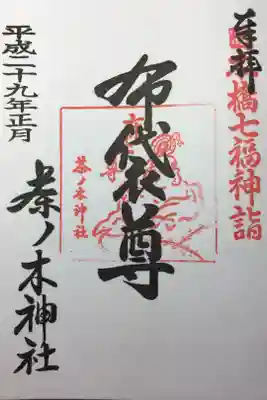 奉拝
橋七福神詣
布代衣尊
茶ノ木神社
平成二十九年正月
茶ノ木神社